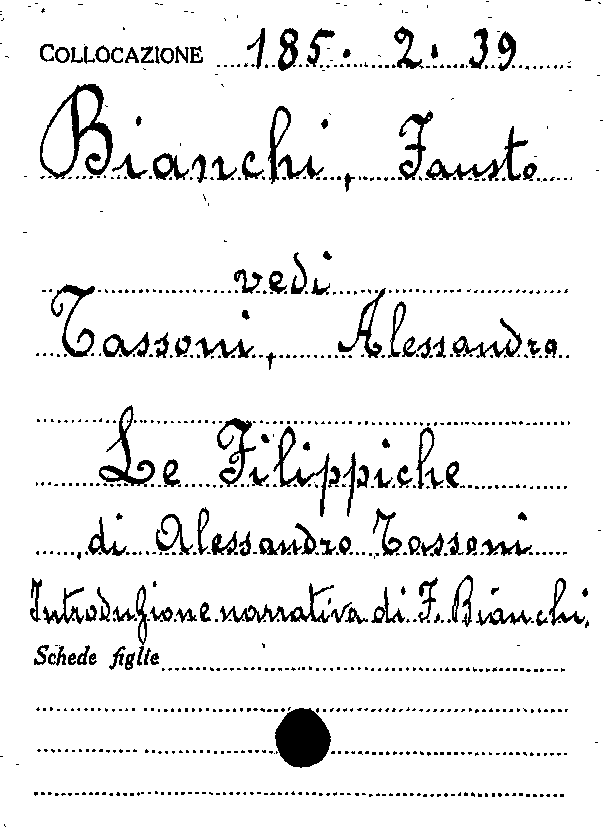 COLLOCAZIONE 185. 2. 39
Bianchi, Fausto
vedi
Tassoni, Alessandro
Le Filippiche
di Alessandro Tassoni
Introduzione narrativa di F. Bianchi.
Schede figlie